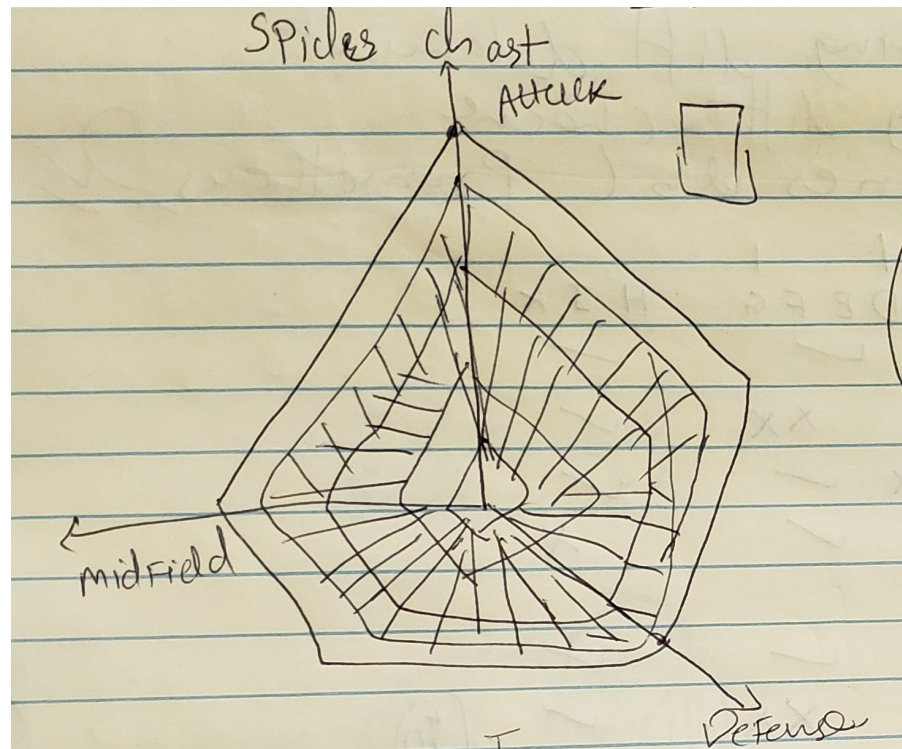 Spider chart
Attack
Midfield
Defense